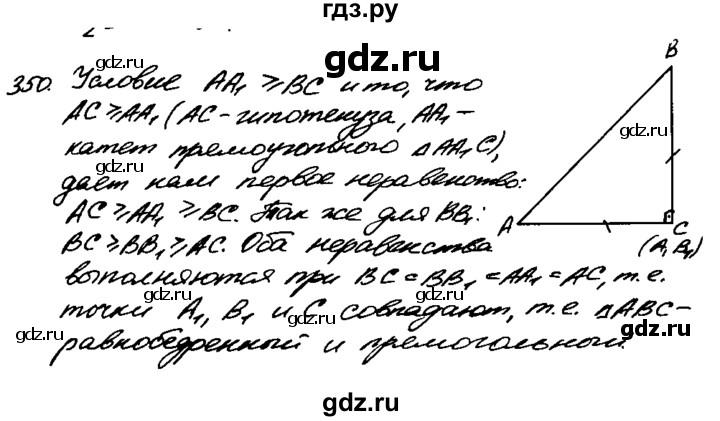 гдз.ру
gdz.ru
350. Условие AA₁ ≥ BC и то, что
AC ≥ AA₁ (AC - гипотенуза, AA₁ -
катет прямоугольного △AA₁C),
дает нам первое неравенство:
AC ≥ AA₁ ≥ BC. Так же для BB₁:
BC ≥ BB₁ ≥ AC. Оба неравенства
выполняются при BC = BB₁ = AA₁ = AC, т.е.
точки A₁, B₁ и C совпадают, т.е. △ABC -
равнобедренный и прямогольный.
B
A
C
(A₁B₁)
gdz.ru
gdz.ru
gdz.ru
gdz.ru
gdz.ru
gdz.ru
gdz.ru
gdz.ru
gdz.ru
gdz.ru